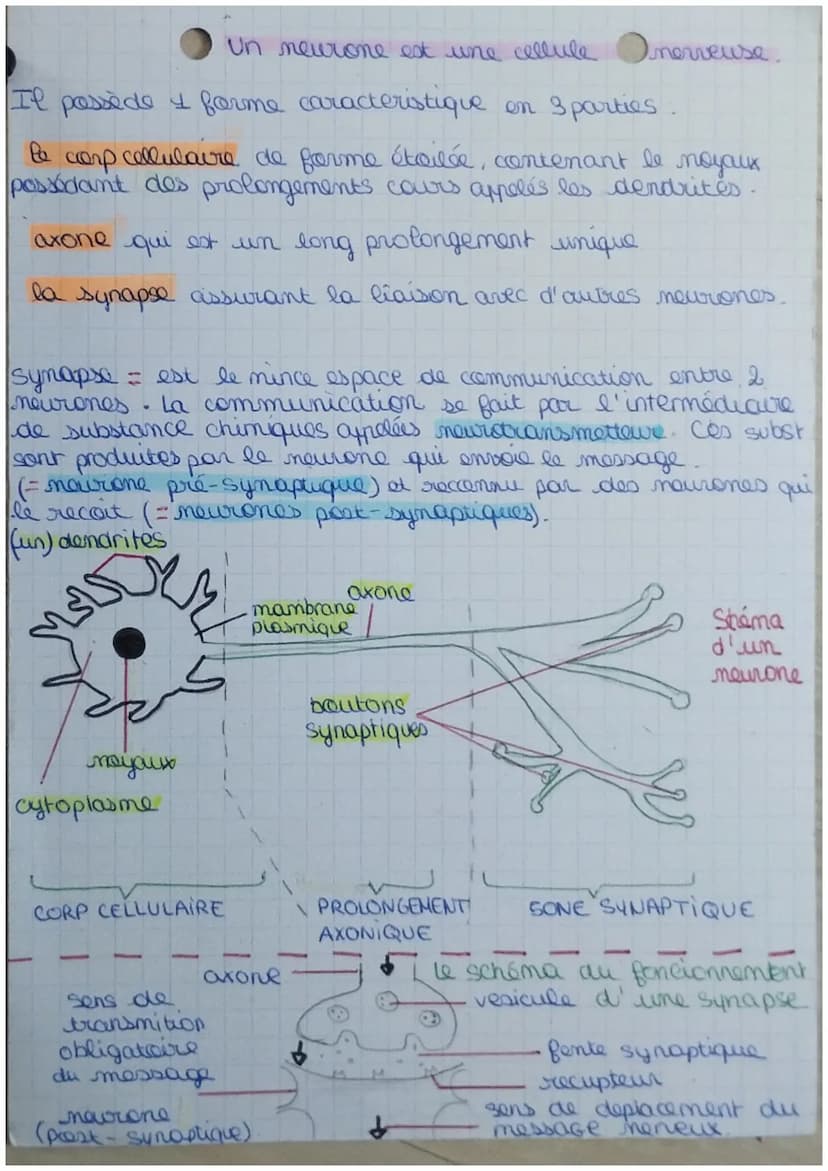 Un neurone est une cellule nerveuse.
Il possède 1 forme caracteristique en 3 parties.
le corp cellulaire de forme étoilée, contenant le noyaux
possédant des prolongements cours appelés les dendrites.
axone qui est un long prolongement unique
la synapse assurant la liaison avec d'autres neurones.
Synapse = est le mince espace de communication entre 2
neurones. La communication se fait par l'intermédiaire
de substance chimiques appelées neurotransmetteur. Ces subst
sont produites par le neurone qui envoie le message
(= neurone pré-synaptique) et reconnu par des neurones qui
le recoit (= neurones post-synaptiques).
(un) dendrites
axone
mambrane
plasmique
Shéma
d'un
neurone
boutons
synaptiques
noyaux
cytoplasme
CORP CELLULAIRE
PROLONGEMENT
AXONIQUE
SONE SYNAPTIQUE
axone
Le schéma du foncionnement
d'une synapse
vesicule
sens de
transmition
obligatoire
du message
fente synaptique
recupteur
neurone
(post-synaptique)
sens de deplacement du
message nerveux.